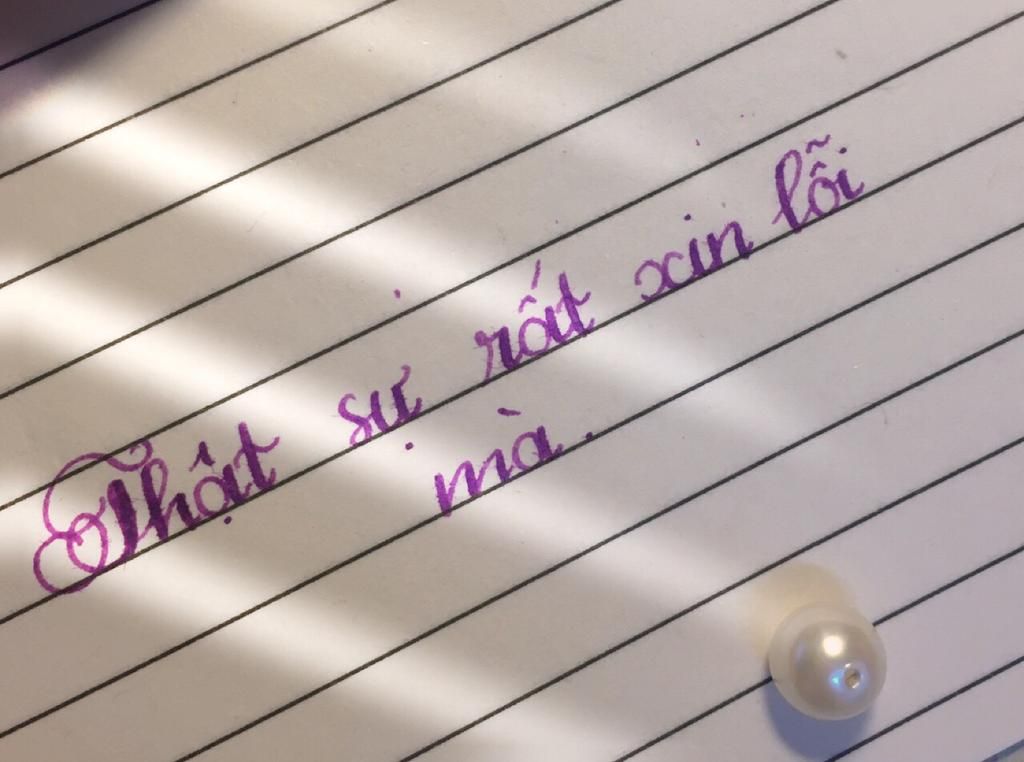 Thật sự rất xin lỗi
mà.